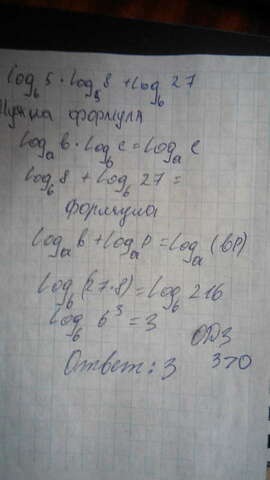 log₆ 5 · log₅ 8 + log₆ 27
Нужна формула
logₐ b · log_b c = logₐ c
log₆ 8 + log₆ 27 =
формула
logₐ b + logₐ p = logₐ (bp)
log₆ (27·8) = log₆ 216
log₆ 6³ = 3
ОДЗ
Ответ: 3 3>0